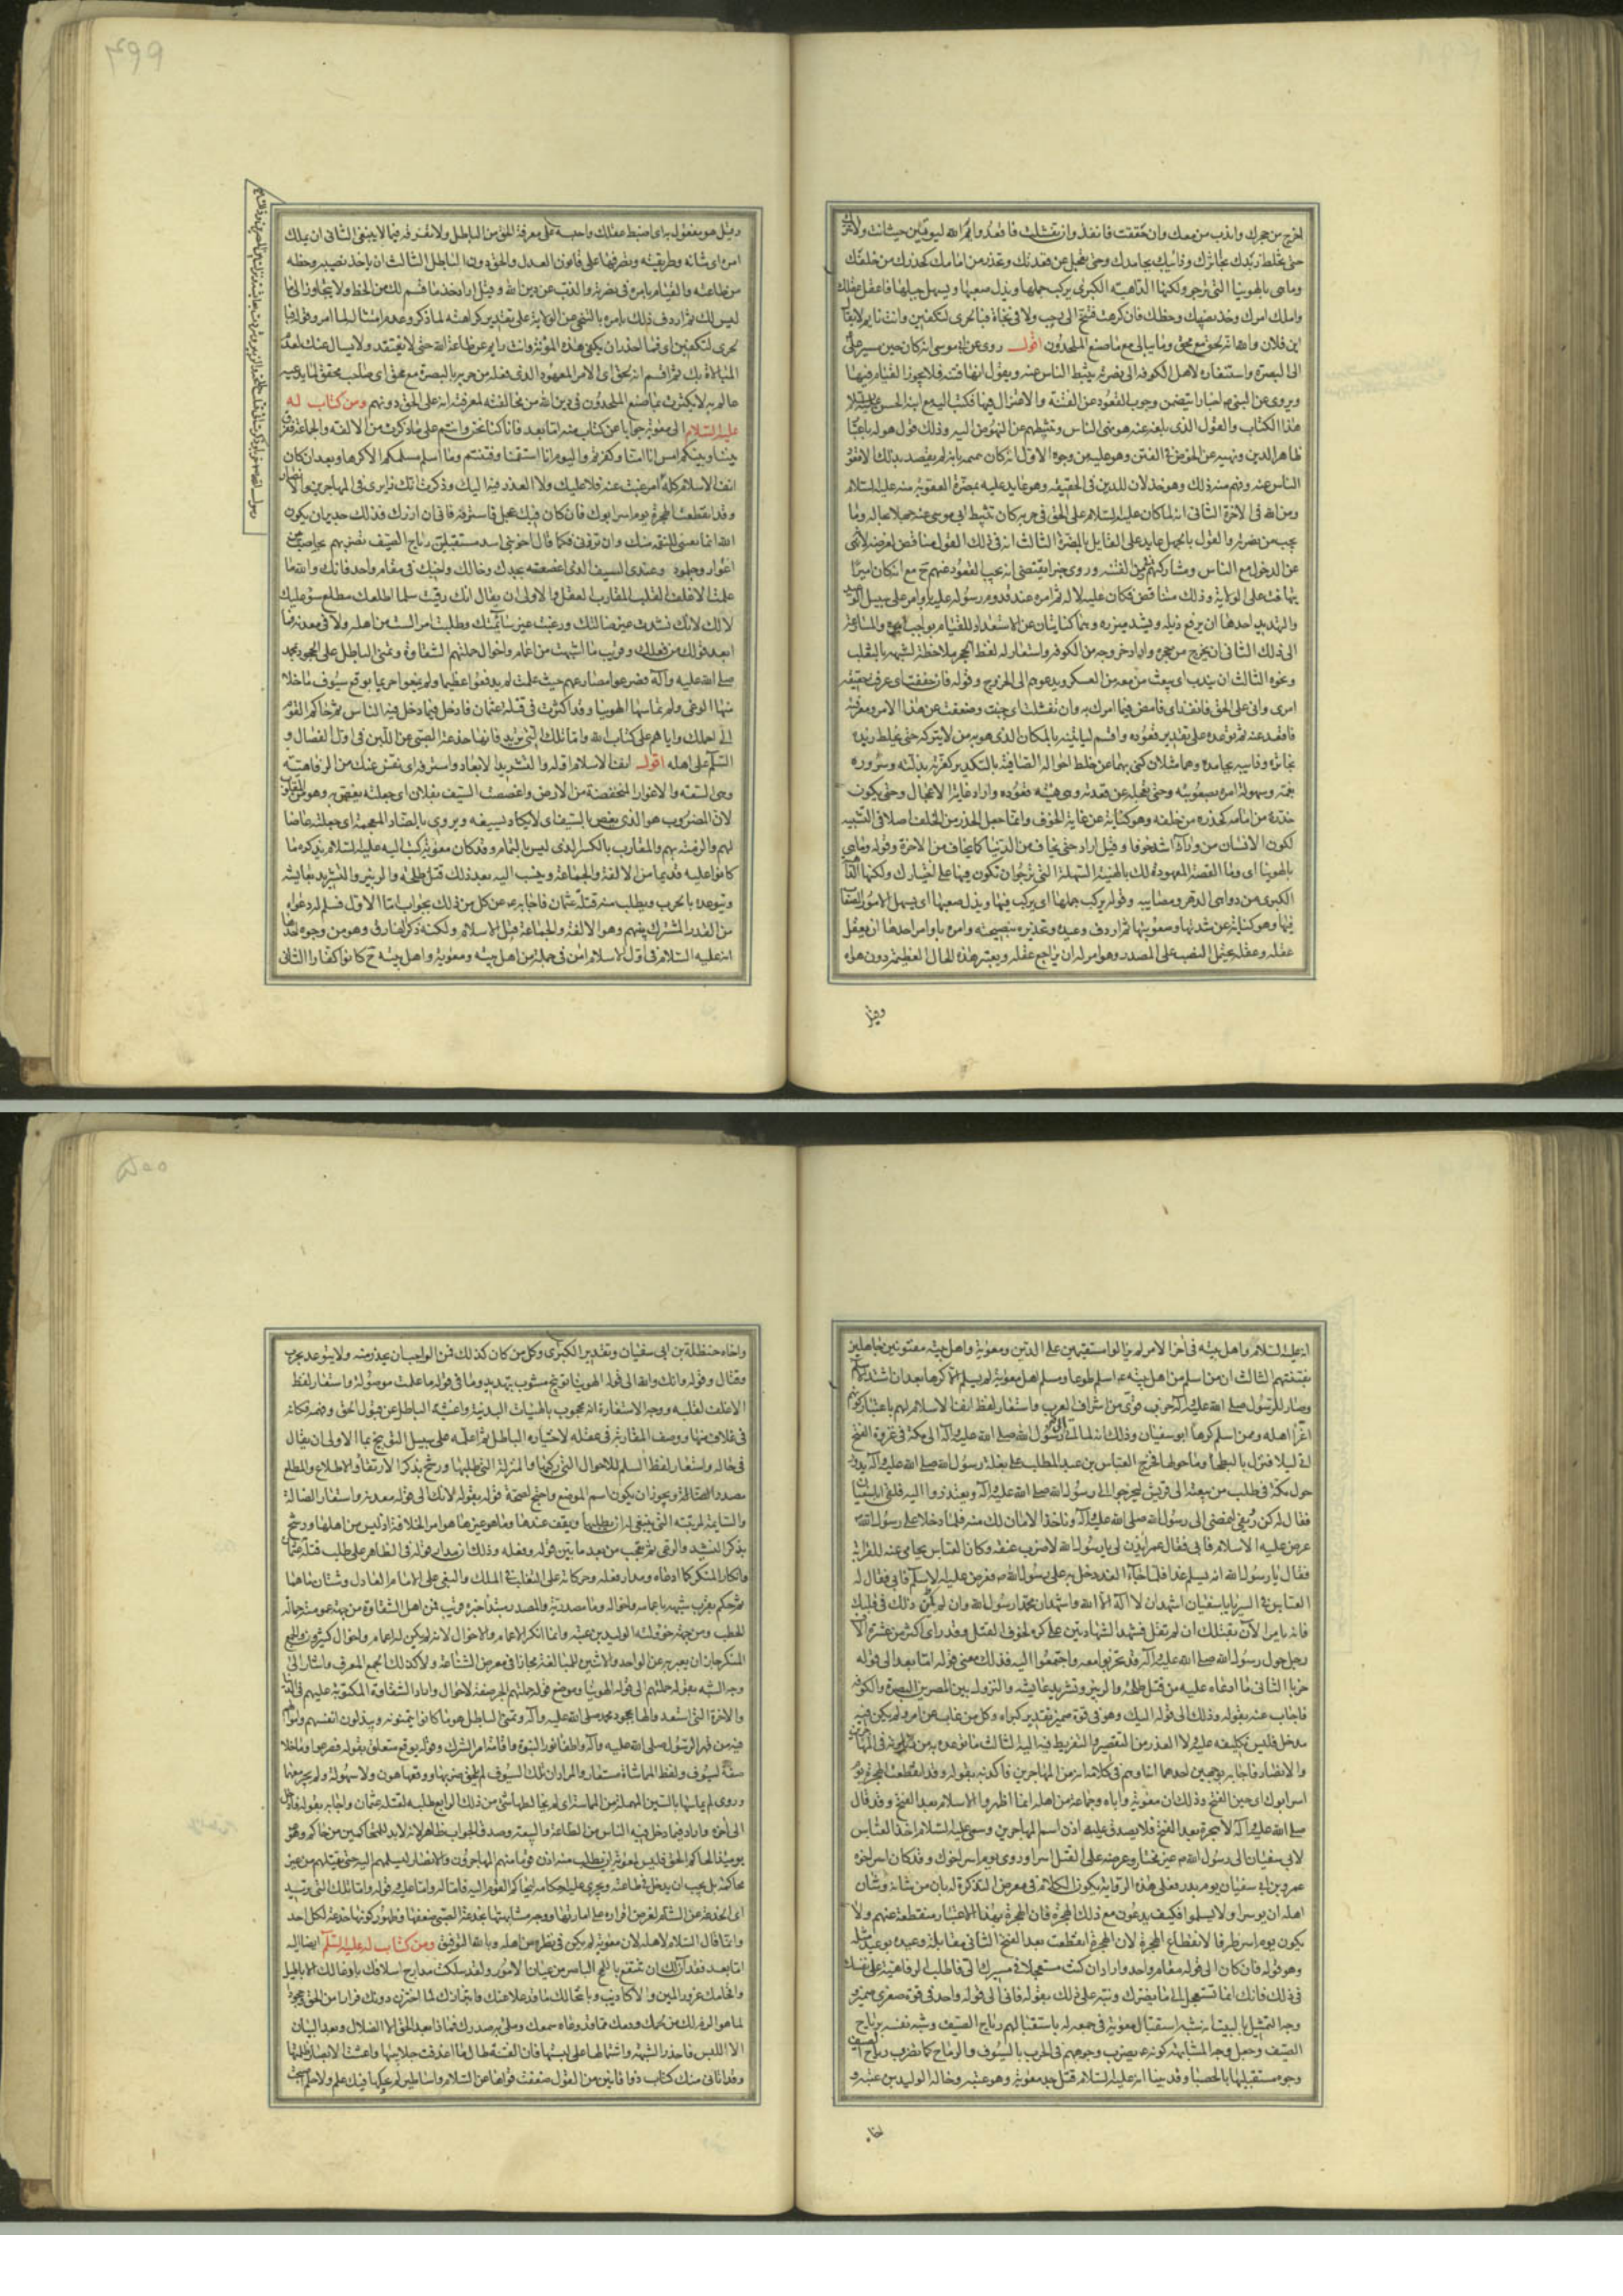 اخرج من جحرك واندب من معك وان حققت فانفذ وان تفشلت فابعد وايم الله ليوتين حيث انت ولا تترك
حتى يخلط زبدك بخاثرك وذائبك بجامدك وحتى تعجل عن قعدتك وتحذر من امامك كحذرك من خلفك
وما هى بالهوينا التى ترجو ولكنها الداهية الكبرى يركب جملها ويذل صعبها ويسهل جبلها فاعقل عقلك
واملك امرك وخذ نصيبك وحظك فان كرهت فتنح الى غير رحب ولا فى نجاة فبالحرى لتكفين وانت نايم حتى لا يقال
اين فلان والله انه لحق مع محق وما يبالى ما صنع الملحدون اقول روى عن ابى موسى انه كان حين مسير على
الى البصرة واستنفاره لاهل الكوفه الى نصرته يثبط الناس عنه ويقول انها فتنه فلا يجوز القيام فيها
ويروى عن النبى اخبارا يتضمن وجوب القعود عن الفتنة والاعتزال فيها فكتب اليه مع ابنه الحسن
هذا الكتاب والقول الذى بلغه عنه هو نهى الناس وتثبيطهم عن النهوض اليه وذلك قول هو له باعتبار
ظاهر الدين ونهيه عن الخوض فى الفتن وهو عليه من وجوه الاول انه كان
الناس عنه وفهم منه ذلك وهو خذلان للدين فى الحقيقه وهو عايد عليه بمضرة العقوبة منه عليه السلام
ومن الله فى الاخرة الثانى انه لما كان عليه السلام على الحق فى حربه كان تثبيط ابى موسى عنه جهلا بحاله وما
يجب من نصرته والقول بالجهل عايد على القايل بالمضرة الثالث انه فى ذلك القول مناقض لغرضه لانه نهى
عن الدخول مع الناس ومشاركتهم فى زمن الفتنه وروى خبرا يقتضى انه يجب القعود عنهم ح مع انه كان اميرا
يتهافت على الولاية وذلك متناقض فكان عليه لا له ثم امره عند قدوم رسوله عليه باوامر على سبيل الوعيد
والتهديد احدها ان يرفع ذيله ويشد ميزره وهما كنايتان عن الاستعداد للقيام بواجب امره والمسارعة
الى ذلك الثانى ان يخرج من جحره واراد خروجه من الكوفه واستعار له لفظ الجحر ملاحظة لشبهه بالثعلب
ونحوه الثالث ان يندب اى يبعث من معه من العسكر ويدعوهم الى الخروج وقوله فان حققت اى عرفت حقيقة
امرى وانى على الحق فانفذ اى فامض فيما امرك به وان تفشلت اى جبنت وضعفت عن هذا الامر ومعرفته
فاقعد عنه ثم توعده على تقدير قعوده واقسم ليأتينه بالمكان الذى هو به من لا يتركه حتى يخلط زبده
بخاثره وذائبه بجامده وهما مثلان كنى بهما عن خلط احواله الصافية بالتكدير كعزته بذلته وسروره
بغمه وسهولة امره بصعوبته وحتى يعجله عن قعدته وهى هيئة قعوده واراد غاية الاعجال وحتى يكون
حذره من امامه كحذره من خلفه وهو كناية عن غاية الخوف وانما جعل الحذر من الخلف اصلا فى التشبيه
لكون الانسان من ورائه اشد خوفا وقيل اراد حتى يخاف من الدنيا كما يخاف من الاخرة وقوله وما هى
بالهوينا اى وما القصة المعهودة لك بالهينة السهلة التى ترجو ان تكون فيها على اختيارك ولكنها الداهية
الكبرى من دواهى الدهر ومصايبه وقوله يركب جملها اى يركب فيها ويذل صعبها اى يسهل الامور الصعاب
فيها وهو كناية عن شدتها وصعوبتها ثم اردف وعيده وتحذيره بنصيحته وامره باوامر احدها ان يعقل
عقله وعقله يحتمل النصب على المصدر وهو امر له ان يراجع عقله ويعتبر هذه الحال العظيمة دون هواه
وقيل
وقيل هو مفعول به اى اضبط عقلك واحبسه على معرفة الحق من الباطل ولا تفرقه فيما لا ينبغى الثانى ان يملك
امره اى شانه وطريقته ويصرفها على قانون العدل والحق دون الباطل الثالث ان ياخذ نصيبه وحظه
من طاعته والقيام بامره فى نصرته والذب عن دين الله وقيل اراد خذ ما قسم لك من الحظ ولا يتجاوز الى ما
ليس لك ثم اردف ذلك بامره بالتنحى عن الولاية على تقدير كراهته لما ذكر وعدم امتثاله لما امره وقوله فبا
لحرى لتكفين اى فما احذر ان يكفى هذه المؤنة وانت نايم عن طاعة الله حتى لا يفتقد ولا يسال عنك لعدم
المبالاة بك ثم اقسم انه لحق اى الامر المعهود الذى فعله من حربه بالبصرة مع محق اى صاحب محقق لما يدعيه
عالم به لا يكترث بما صنع الملحدون فى دين الله من مخالفته لمعرفته انه على الحق دونهم ومن كتاب له
عليه السلام الى معوية جوابا عن كتاب منه اما بعد فانا كنا نحن وانتم على ما ذكرت من الالفه والجماعة ففرق
بيننا وبينكم امس انا امنا وكفرتم واليوم انا استقمنا وفتنتم وما اسلم مسلمكم الا كرها وبعد ان كان
انف الاسلام كله
غبت عنه فلا عليك ولا العذر فيه اليك وذكرت انك زايرى فى المهاجرين والانصار
وقد انقطعت الهجرة يوم اسر ابوك فان كان فيك عجل فاسترفه فانى ان ازرك فذلك جدير ان يكون
الله انما بعثنى للنقمة منك وان تزرنى فكما قال اخو بنى اسد مستقبلين رياح الصيف تضربهم بحاصب بين
اغوار وجلمود وعندى السيف الذى اعضضته بجدك وخالك واخيك فى مقام واحد فانك والله ما
علمت الاغلف القلب المقارب العقل والاولى ان يقال انك رقيت سلما اطلعك مطلع سوء عليك
لا لك لانك نشدت غير ضالتك ورعيت غير سائمتك وطلبت امرا لست من اهله ولا فى معدنه فما
ابعد قولك من فعلك وقريب ما اشبهت من اعمام واخوال حملتهم الشقاوة وتمنى الباطل على الجحود بمحمد
صلى الله عليه وآله فصرعوا مصارعهم حيث علمت لم يدفعوا عظيما ولم يمنعوا حريما بوقع سيوف ما خلا
منها الوغى ولم تماشها الهوينا وقد اكثرت فى قتلة عثمان فادخل فيما دخل فيه الناس ثم حاكم القوم
الى احملك واياهم على كتاب الله واما تلك التى تريد فانها خدعة الصبى عن اللبن فى اول الفصال و
السلم على اهله اقول انف الاسلام اوله والتشريد الابعاد واسترفه اى نفس عنك من الرفاهية
وهى السعة والاغوار المنخفضة من الارض واعضضت السيف بفلان اى جعلته يعض به وهو من المقلوب
لان المضروب هو الذى يعض بالسيف
لهم والزمته بهم والمقارب بالكسر الذى ليس بالتمام وقد كان معوية كتب اليه عليه السلام يذكره ما
كانوا عليه قديما من الالفة والجماعة وينسب اليه بعد ذلك قتل طلحة والزبير والتشريد بعايشه
وتوعده بالحرب ويطلب منه قتلة عثمان فاجابه عن كل من ذلك بجواب اما الاول فسلم له دعواه
من القدر المشترك بينهم وهو الالفة والجماعة قبل الاسلام ولكنه ذكر الفارق وهو من وجوه احدها
انه عليه السلام فى اول الاسلام امن فى جملة من اهل بيته ومعوية واهل بيته ح كانوا كفارا الثانى
۴۹۹
انه عليه السلام واهل بيته فى آخر الامر لم يزالوا مستقيمين على الدين ومعوية واهل بيته مفتونين جاهلين
بفتنتهم الثالث ان من اسلم من اهل بيته اسلم طوعا ومسلم اهل معوية لم يسلم الا كرها بعد ان اشتد الاسلام
وصار للرسول صلى الله عليه وآله حزب قوى من اشراف العرب واستعار لفظ انف الاسلام لهم باعتبار كونهم
اعز اهله وممن اسلم كرها ابو سفيان وذلك انه لما اتى رسول الله صلى الله عليه وآله الى مكة فى غزوة الفتح
اتى ليلا فنزل بالبطحا وما حولها فخرج العباس بن عبد المطلب على بغلة رسول الله صلى الله عليه وآله يدور
حول مكة فى طلب من يبعثه الى قريش ليخرجوا الى رسول الله صلى الله عليه وآله ويعتذروا اليه فلقى ابا سفيان
فقال له كن رديفى لتمضى الى رسول الله صلى الله عليه وآله وناخذ الامان لك منه فلما دخلا على رسول الله
عرض عليه الاسلام فابى فقال عمر ايذن لى يا رسول الله لاضرب عنقه وكان العباس يحامى عنه للقرابة
فقال يا رسول الله انه يسلم غدا فلما جاء الغد دخل به على رسول الله فعرض عليه الاسلام فابى فقال له
العباس فى السر يا ابا سفيان اشهد ان لا اله الا الله واشهد ان محمدا رسول الله وان لم يكن ذلك فى قلبك
فانه يامر الآن بقتلك ان لم تقل فشهد الشهادتين على كره لخوف القتل وقد راى اكثر من عشرة الاف
رجل حول رسول الله صلى الله عليه وآله قد تحزبوا معه واجتمعوا اليه فذلك معنى قوله اما بعد الى قوله
حزبا الثانى ما ادعاه عليه من قتل طلحة والزبير وتشريد عايشه والنزول بين المصرين البصرة والكوفه
فاجاب عنه بقوله وذلك الى قوله اليك وهو فى قوة ضمير تقدير كبراه وكل من غاب عن امر ولم يكن فيه
مدخل فليس تكليفه عليه ولا العذر من التقصير والتفريط فيه اليه الثالث ما توعده به من زيارته فى المهاجرين
والانصار فاجابه بوجهين احدهما انه اوهم فى كلامه انه من المهاجرين فاكذبه بقوله وقد انقطعت الهجرة يوم
اسر ابوك اى حين الفتح وذلك ان معوية واباه وجماعة من اهله انما اظهروا الاسلام بعد الفتح وقد قال
صلى الله عليه وآله لا هجرة بعد الفتح فلا يصدق عليهم اذن اسم المهاجرين وسمى عليه السلام اخذ العباس
لابى سفيان الى رسول الله غير مختار وعرضه على القتل اسرا وروى يوم اسر اخوك وقد كان اسر اخوه
عمرو بن ابى سفيان يوم بدر فعلى هذه الرواية يكون الكلام فى معرض التذكرة له بان من شانه وشان
اهله ان يوسروا ولا يسلموا فكيف يدعون مع ذلك الهجرة فان الهجرة بهذا الاعتبار منقطعة عنهم ولا
يكون يوم اسر ظرفا لانقطاع الهجرة لان الهجرة انقطعت بعد الفتح الثانى مقابلة وعيده بوعيد مثله
وهو قوله فان كان الى قوله مقام واحد واراد ان كنت مستعجلا فى مسيرك الى فاطلب الرفاهية على نفسك
فى ذلك فانك انما تستعجل الى ما يضرك ونبه على ذلك بقوله فانى الى قوله واحد فى قوة صغرى ضمير و
وجه التمثيل بالبيت انه شبه استقبال معوية فى جمعه له باستقبالهم رياح الصيف وشبه نفسه برياح
الصيف وجعل وجه المشابهة كونه يضرب وجوههم فى الحرب بالسيوف والرماح كما تضرب رياح الصيف
وجوه مستقبليها بالحصباء وقد بينا انه عليه السلام قتل جد معوية وهو عتبه وخاله الوليد بن عتبه و
اخاه
واخاه حنظلة بن ابى سفيان وتقدير الكبرى وكل من كان كذلك فمن الواجب ان يحذر منه ولا يتوعد بحرب
وقتال وقوله وانك والله الى قوله الهوينا توبيخ مشوب بتهديد وما فى قوله ما علمت موصولة واستعار لفظ
الاغلف لقلبه ووجه الاستعارة انه محجوب بالهيئات البدنية واغشية الباطل عن قبول الحق وفهمه فكانه
فى غلاف منها ووصف المقاربة فى عقله لاختياره الباطل ثم اعلمه على سبيل التوبيخ بما الاولى ان يقال
فى حاله واستعار لفظ السلم للاحوال التى ركبها والمنزلة التى طلبها ورشح بذكر الارتقاء والاطلاع والمطلع
مصدر
ويجوز ان يكون اسم الموضع واحتج لصحة قوله بقوله لانك الى قوله معدنه واستعار الضالة
والسايمة لمرتبه التى ينبغى له ان يطلبها ويقف عندها وما هو غيرها هو امر الخلافة اذ ليس من اهلها ورشح
بذكر النشيد والرعى ثم تعجب من بعد ما بين قوله وفعله وذلك ان مدار قوله فى الظاهر على طلب قتلة عثمان
وانكار المنكر كما ادعاه ومدار فعله وحركاته على التغلب فى الملك والبغى على الامام العادل وشتان ما هما
ثم حكم بقرب شبهه باعمامه واخواله وما مصدرية والمصدر مبتدأ خبره قريب فمن اهل الشقاوة من جهة عمومته حمالة
الحطب ومن جهة خؤولته الوليد بن عتبه وانما انكر الاعمام والاخوال لانه لم يكن له اعمام واخوال كثيرون والجمع
المنكر جاز ان يعبر به عن الواحد والاثنين للمبالغة مجازا فى معرض الشناعة ولا كذلك الجمع المعرف واشار الى
وجه الشبه بقوله حملتهم الى قوله الهوينا وموضع قوله حملتهم الجر صفة لاخوال واراد الشقاوة المكتوبة عليهم فى الدنيا
والاخرة التى استعدوا لها بجحود محمد صلى الله عليه وآله وتمنى الباطل هو ما كانوا يتمنونه ويبذلون انفسهم
فيه من قهر الرسول صلى الله عليه وآله واطفاء نور النبوة واقامة امر الشرك وقوله بوقع متعلق بقوله فصرعوا وما خلا
صفة لسيوف ولفظ المماشاة مستعار والمراد ان تلك السيوف لم يلحق ضربها ووقعها هون ولا سهولة ولم يجر معهما
وروى لم يماسها بالسين المهملة من المماسة اى لم يخالطها شئ من ذلك الرابع طلبه لقتلة عثمان واجابه بقوله فادخل
الى آخره واراد فيما دخل فيه الناس من الطاعة والبيعة وصدق الجواب ظاهر لانه لابد للمتحاكمين من حاكم وهو
يومئذ الحاكم الحق فليس لمعوية ان يطلب منه اذن قوما منهم المهاجرون والانصار ليسلمهم اليه حتى يقتلهم من غير
محاكمة بل يجب ان يدخل فى طاعته ويجرى عليه احكامه ليحاكم القوم اليه فاما له واما عليه قوله واما تلك التى تريد
اى الخدعة عن الشام لغرض اقراره على امارتها ووجه مشابهتها بخدعة الصبى ضعفها وظهور كونها خدعة لكل احد
وانما قال السلام لاهله لان معوية لم يكن فى نظره من اهله وبالله التوفيق ومن كتاب له عليه السلم ايضا اليه
اما بعد فقد آن لك ان تنتفع باللمح الباصر من عيان الامور ولقد سلكت مدارج اسلافك بادعائك الاباطيل
واقحامك غرور المين والاكاذيب وبانتحالك ما قد علا عنك فابتزازك لما اختزن دونك فرارا من الحق وجحودا
لما هو الزم لك من لحمك ودمك مما قد وعاه سمعك وملئ به صدرك فماذا بعد الحق الا الضلال وبعد البيان
الا اللبس فاحذر الشبهة واشتمالها على لبستها فان الفتنة طال ما اغدفت جلابيبها واعشت الابصار ظلمتها
وقد اتانى منك كتاب ذو افانين من القول ضعفت قواها عن السلم واساطير لم يحكها منك علم ولا حلم
۵۰۰